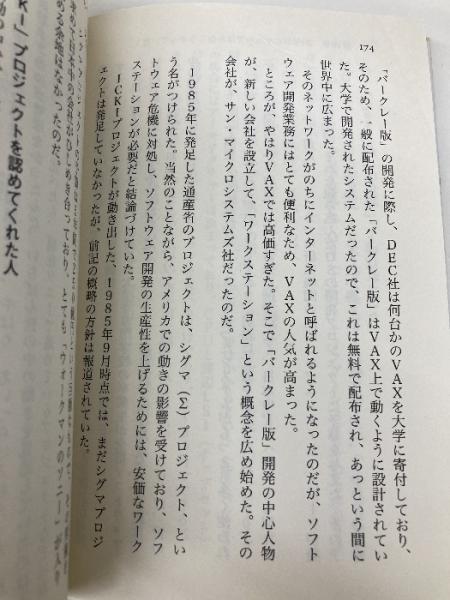 174
「バークレー版」の開発に際し、DEC社は何台かのVAXを大学に寄付しており、
そのため、一般に配布された「バークレー版」はVAX上で動くように設計されてい
た。大学で開発されたシステムだったので、これは無料で配布され、あっという間に
世界中に広まった。
そのネットワークがのちにインターネットと呼ばれるようになったのだが、ソフト
ウェア開発業務にはとても便利なため、VAXの人気が高まった。
ところが、やはりVAXでは高価すぎた。そこで「バークレー版」開発の中心人物
が、新しい会社を設立して、「ワークステーション」という概念を広め始めた。その
会社が、サン・マイクロシステムズ社だったのだ。
1985年に発足した通産省のプロジェクトは、シグマ(Σ)プロジェクト、とい
う名がつけられた。当然のことながら、アメリカでの動きの影響を受けており、ソフ
トウェア危機に対処し、ソフトウェア開発の生産性を上げるためには、安価なワーク
ステーションが必要だと結論づけていた。
ICKIプロジェクトが動き出した、1985年9月時点では、まだシグマプロジ
ェクトは発足していなかったが、前記の概略の方針は報道されていた。
とても「ウォークマンのソニー」が入り
める余地はなかったのだ。
KI」プロジェクトを認めてくれた人